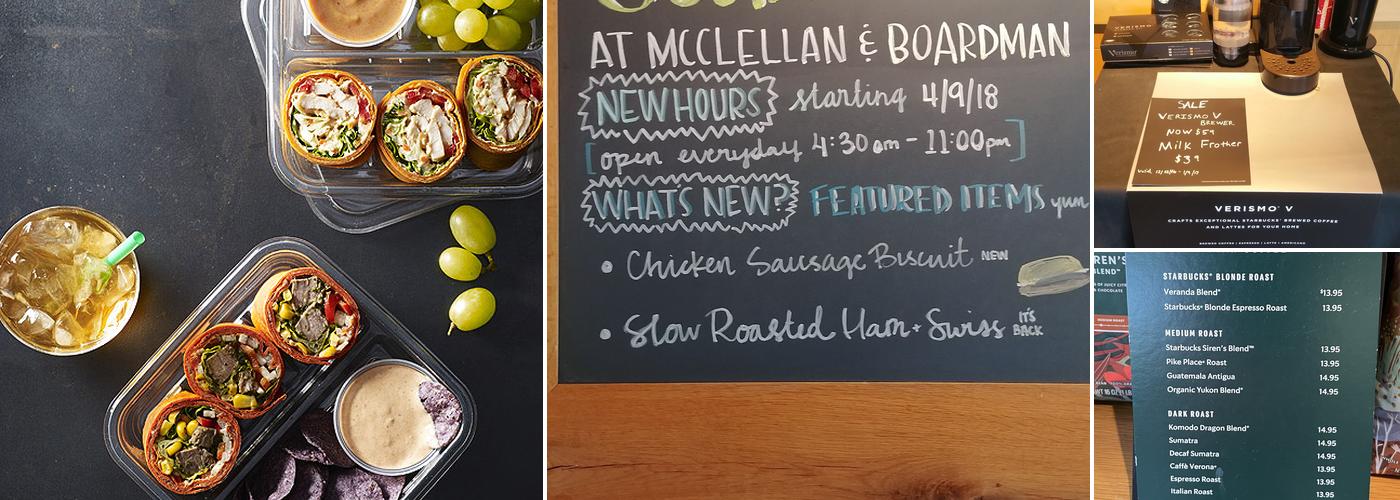 AT MCCLELLAN & BOARDMAN
NEW HOURS starting 4/9/18
[open everyday 4:30am - 11:00pm]
WHAT'S NEW? FEATURED ITEMS yum
• Chicken Sausage Biscuit NEW
• Slow Roasted Ham + Swiss IT'S BACK
Verismo
SALE
VERISMO V
BREWER
NOW $59
Milk Frother
$39
VERISMO® V
CRAFTS EXCEPTIONAL STARBUCKS® BREWED COFFEE
AND LATTES FOR YOUR HOME
BREWED COFFEE | ESPRESSO | LATTE | AMERICANO
STARBUCKS® BLONDE ROAST
Veranda Blend® $13.95
Starbucks® Blonde Espresso Roast 13.95
MEDIUM ROAST
Starbucks Siren's Blend™ 13.95
Pike Place® Roast 13.95
Guatemala Antigua 14.95
Organic Yukon Blend® 14.95
DARK ROAST
Komodo Dragon Blend® 14.95
Sumatra 14.95
Decaf Sumatra 14.95
Caffè Verona® 13.95
Espresso Roast 13.95
Italian Roast 13.95